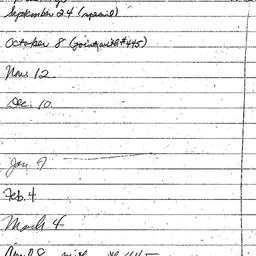 September 24 (special)
October 8 (joint with #445)
Nov. 12
Dec. 10
Jan. 9
Feb. 4
March 4